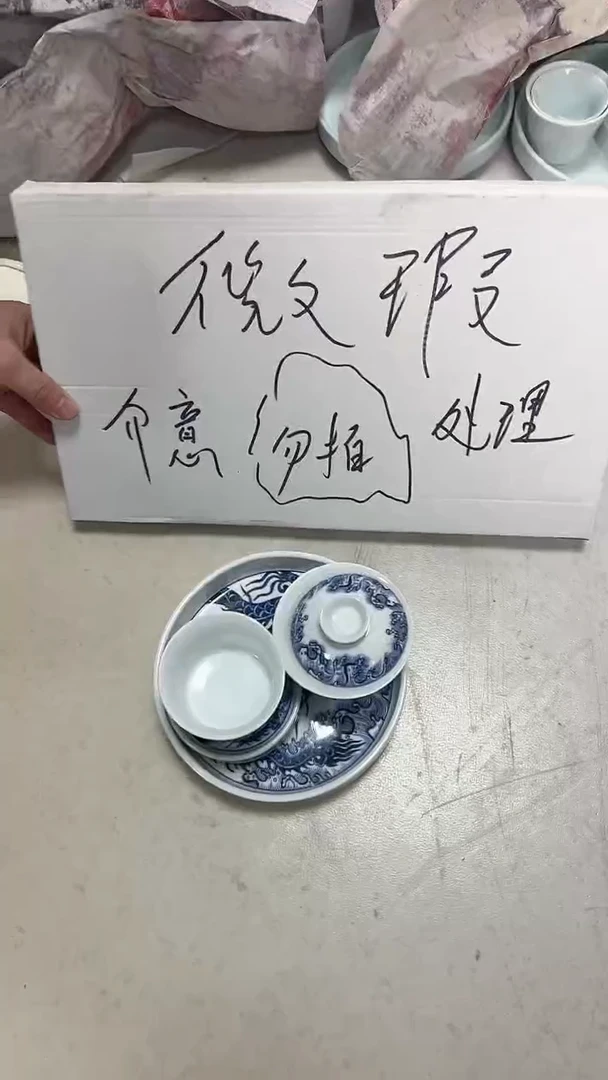 微瑕
介意勿拍处理